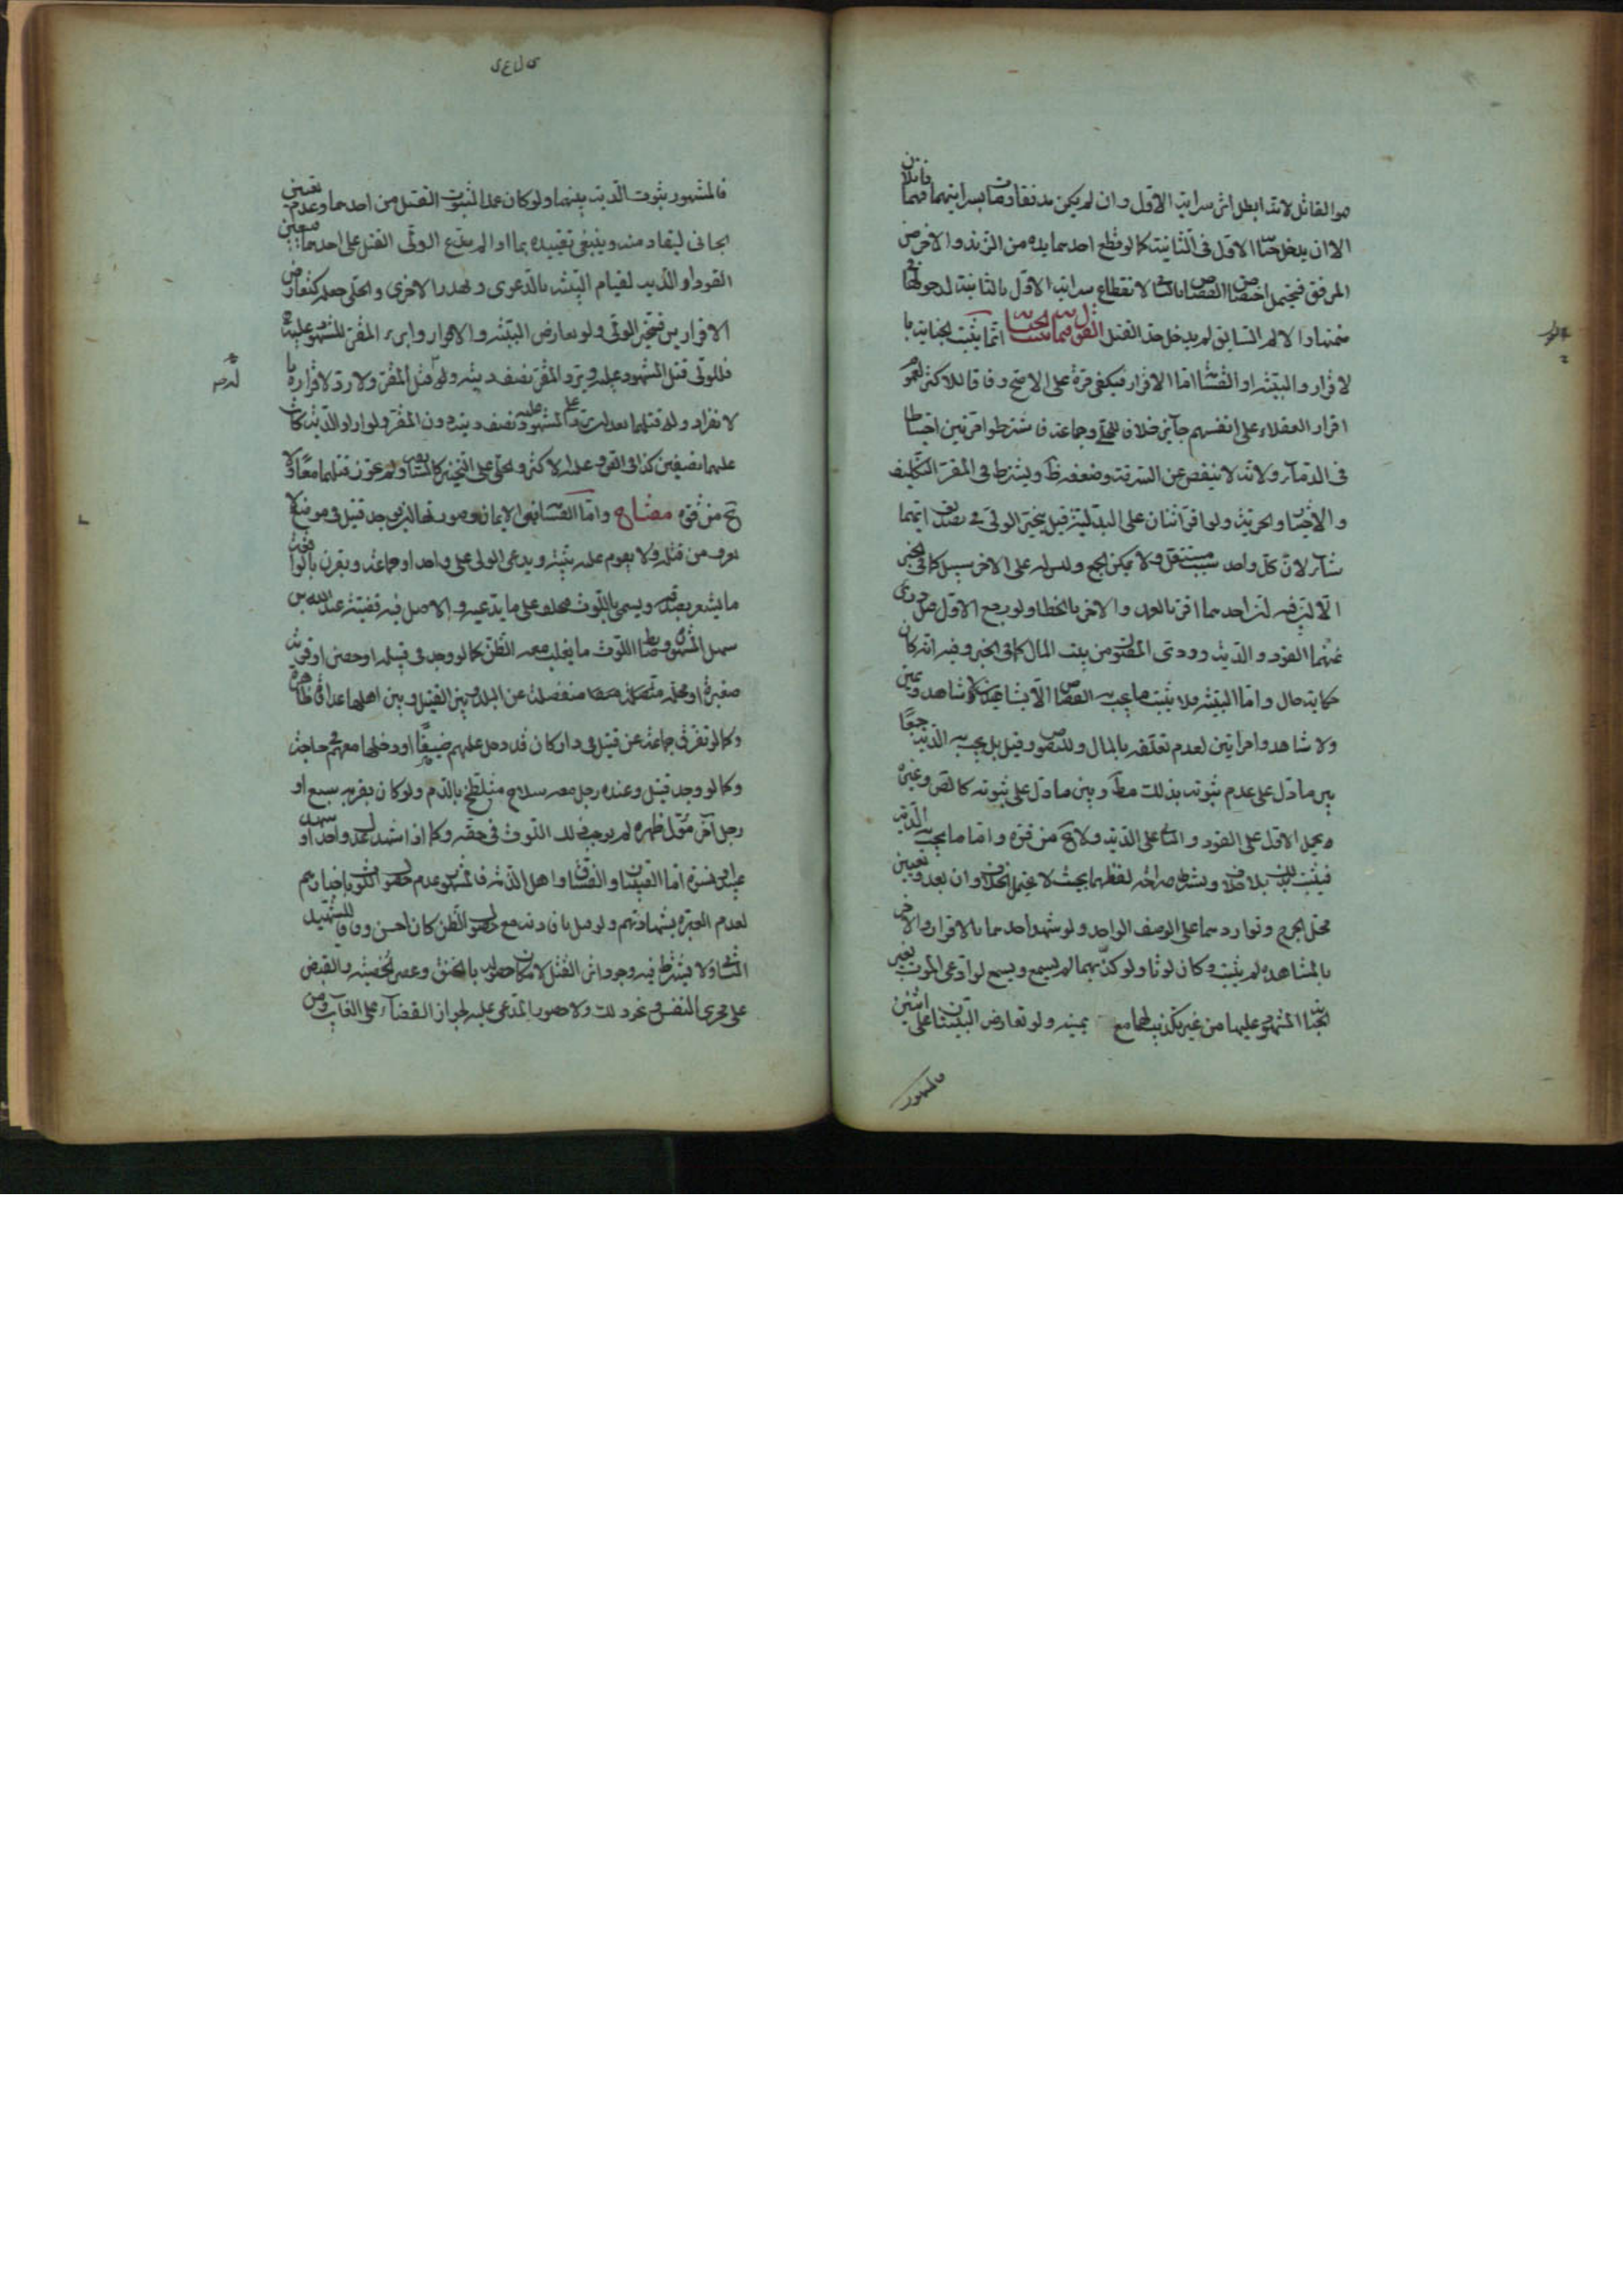 هو القاتل لانه ابطل اثر سراية الاول وان لم يكن مدففا و مات بسرايتهما فهما قاتلان
الا ان يدخل جناية الاول فى الثانية كما لو قطع احدهما يده من الزند والاخر من
المرفق فيحتمل اختصاص القصاص بالثانى لانقطاع سراية الاول بالثانية لدخولها فى
ضمنها والالم السابق لم يدخل حد القتل القول فيما يثبت به الجناية انما يثبت الجناية با
لاقرار والبينة او القسامة اما الاقرار فيكفى مرة على الاصح وفاقا للاكثر لعموم
اقرار العقلاء على انفسهم جايز خلافا للحلى وجماعة فاشترطوا مرتين احتياطا
فى الدماء ولانه لا ينقص عن السرقة وضعفه ظ ويشترط فى المقر التكليف
والاختيار والحرية ولو اقر اثنان على البدلية قيل يتخير الولى فى تصديق ايهما
شاء لان كل واحد سبب مستقل ولا يمكن الجمع وليس له على الاخر سبيل كما فى الخبر
الاتى فيه ان احدهما اقر بالعمد والاخر بالخطا ولو رجع الاول قيل درئ
عنهما القود والدية وودى المقتول من بيت المال كما فى الخبر وفيه انه كان
حكاية حال واما البينة فلا يثبت ما يجب به القصاص الا بشاهدين لا شاهد ويمين
ولا شاهد وامراتين لعدم تعلقه بالمال وللنصوص وقيل بل يجب به الدية جمعا
بين ما دل على عدم ثبوته بذلك مط وبين ما دل على ثبوته كالنص وغيره
بحمل الاول على القود والثانى على الدية ولا يخ من قوة واما ما يجب به الدية
فيثبت بذلك بلا خلاف ويشترط صراحة لفظهما بحيث لا يحتمل الخلاف وان بعد وتعيين
محل الجرح وتواردهما على الوصف الواحد ولو شهد احدهما بالاقرار والاخر
بالمشاهدة لم يثبت وكان لوثا ولو كذبهما لم يسمع ويسمع لو ادعى الموت بغير
الجناية المشهود عليها من غير تكذيب لهما مع يمينه ولو تعارض البينتان على اثنين
فالمشهور
فالمشهور ثبوت الدية بينهما ولو كان عمدا لثبوت القتل من احدهما وعدم تعيين
الجانى ليقاد منه وينبغى تقييده بما اذا لم يدع الولى القتل على احدهما معين
القود او الدية لقيام البينة بالدعوى وتهدر الاخرى والحلى جعله كتعارض
الاقرارين فتخير الولى ولو تعارض البينة والاقرار وابرء المقر للمشهود عليه
فللولى قتل المشهود عليه ويرد المقر نصف ديته وله قتل المقر ولا رد لاقراره با
لانفراد وله قتلهما بعد ان يرد على المشهود عليه نصف ديته دون المقر ولو اراد الدية كانت
عليهما نصفين كذا فى القوى عمل الاكثر والحلى على التخيير كالسابق ولم يجوز قتلهما معا ولا
يخ من قوة مفتاح واما القسامة فهى الايمان وصورتها ان يوجد قتيل فى موضع لا
يعرف من قتله ولا يقوم عليه بينة ويدعى الولى على واحد او جماعة ويقرن بالواقعة
ما يشعر بصدقه ويسمى باللوث فيحلف على ما يدعيه والاصل فيه قضية عبد الله بن
سهل المشهورة وضابط اللوث ما يغلب معه الظن كما لو وجد فى قبيلة او حصن او قرية
صغيرة او محلة منفصلة عن البلد وبين القتيل وبين اهلها عداوة ظاهرة
وكما لو تفرق جماعة عن قتيل فى دار كان قد دخل عليهم ضيفا او دخلها معهم فى حاجة
وكما لو وجد قتيل وعنده رجل معه سلاح متلطخ بالدم ولو كان بقربه سبع او
رجل اخر مول ظهره لم يوجب ذلك اللوث فى حقه وكما اذا شهد عدل واحد او
عبيد او نسوة اما الصبيان والفساق واهل الذمة فالمشهور عدم حصول اللوث باخبارهم
لعدم العبرة بشهادتهم ولو قيل بافادته مع حصول الظن كان احسن وفاقا للشهيد
الثانى ولا يشترط فيه وجود اثر القتل لامكان حصوله بالخنق وعصر الخصية والقبض
على مجرى النفس ونحو ذلك ولا حضور المدعى عليه لجواز القضاء على الغايب ومن